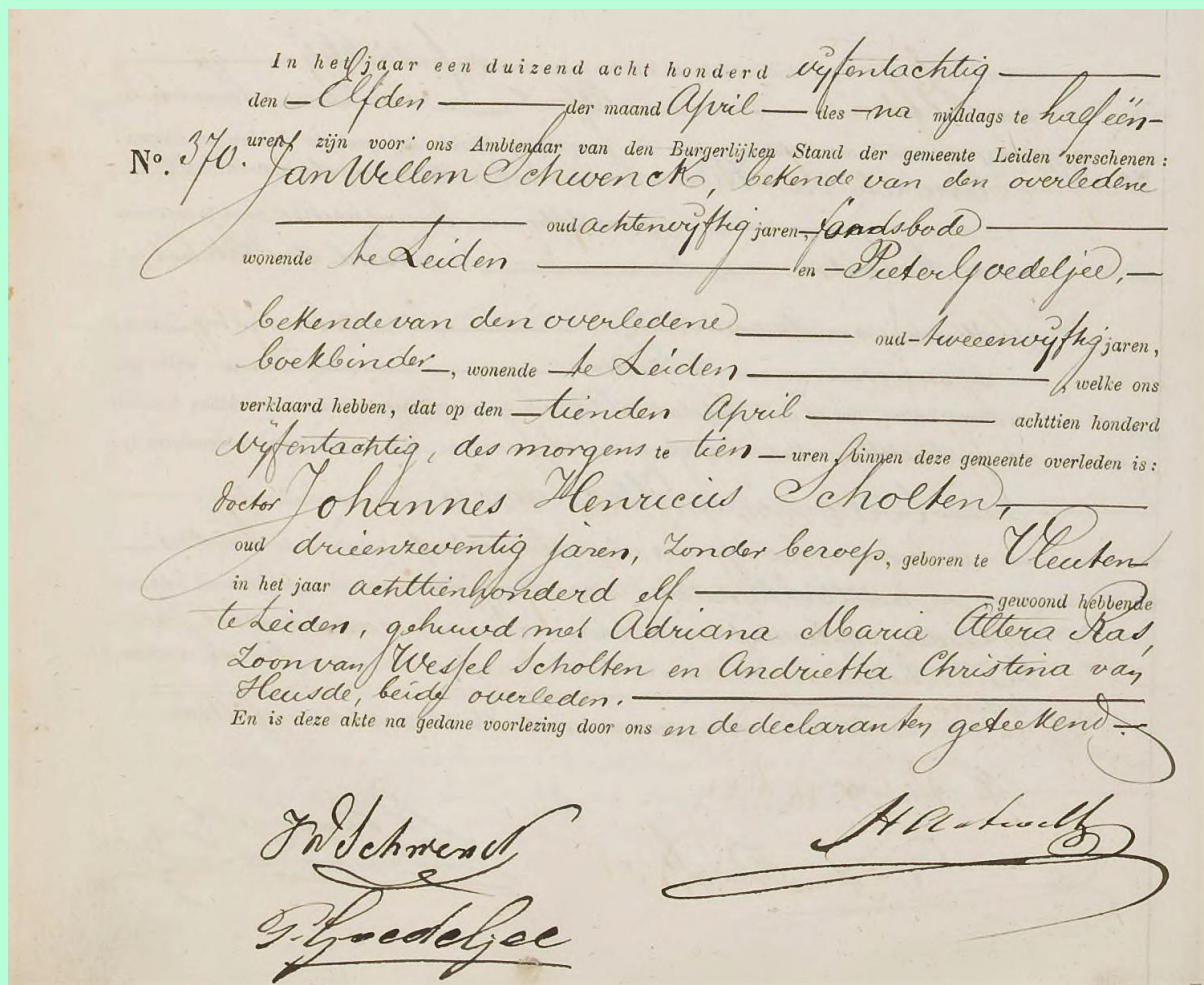 In het jaar een duizend acht honderd vijfentachtig
den Elfden der maand April des na middags te half één
No. 370. uren zijn voor ons Ambtenaar van den Burgerlijken Stand der gemeente Leiden verschenen:
Jan Willem Schwenck, bekende van den overledene
oud achtenvijftig jaren, landsbode
wonende te Leiden en Pieter Goedeljee,
bekende van den overledene oud tweeenvijftig jaren,
boekbinder, wonende te Leiden, welke ons
verklaard hebben, dat op den tienden April achttien honderd
vijfentachtig, des morgens te tien uren, binnen deze gemeente overleden is:
doctor Johannes Henricus Scholten,
oud drieenzeventig jaren, zonder beroep, geboren te Vleuten
in het jaar achttienhonderd elf gewoond hebbende
te Leiden, gehuwd met Adriana Maria Altera Ras,
zoon van Wessel Scholten en Andrietta Christina van
Heusde, beide overleden.
En is deze akte na gedane voorlezing door ons en de declaranten geteekend
JW Schwenck
P. Goedeljee